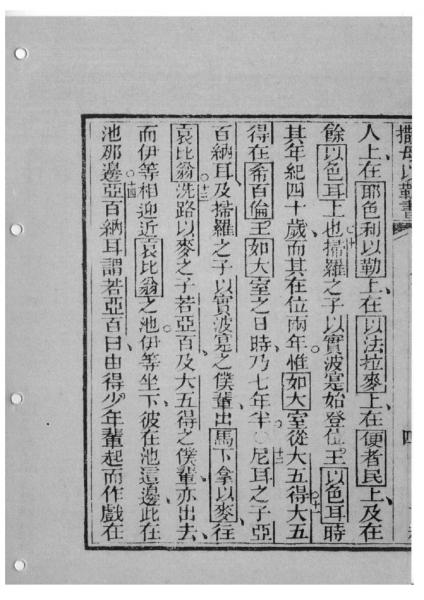 撒母以勒書
四
人上在耶色利以勒上在以法拉麥上在便者民上及在
餘以色耳上也掃羅之子以實波寔始登位王以色耳時
其年紀四十歲而其在位兩年惟如大室從大五得大五
得在希百倫王如大室之日時乃七年半尼耳之子亞
百納耳及掃羅之子以實波寔之僕輩出馬下拿以麥往
袁比翁洗路以麥之子若亞百及大五得之僕輩亦出去
而伊等相迎近袁比翁之池伊等坐下彼在池這邊此在
池那邊亞百納耳謂若亞百曰由得少年輩起而作戲在